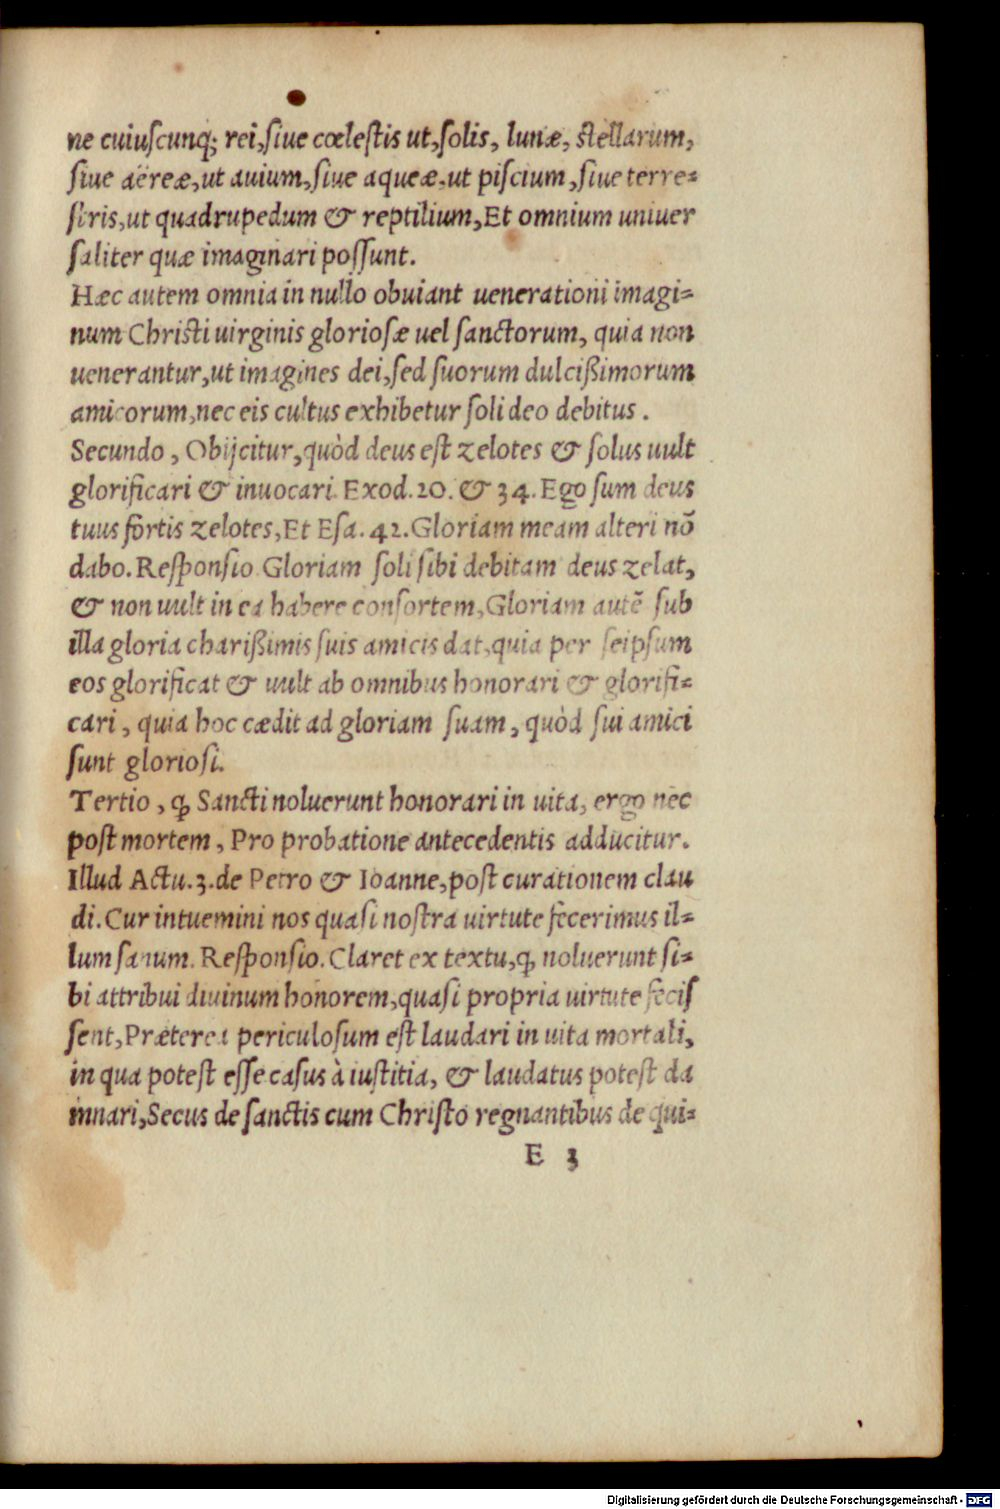 ne cuiuscunq; rei, ſiue cœleſtis ut, ſolis, lunæ, ſtellarum,
ſiue aëreæ, ut auium, ſiue aqueæ, ut piſcium, ſiue terre-
ſtris, ut quadrupedum & reptilium, Et omnium uniuer
ſaliter quæ imaginari poſſunt.
Hæc autem omnia in nullo obuiant uenerationi imagi-
num Chriſti uirginis glorioſæ uel ſanctorum, quia non
uenerantur, ut imagines dei, ſed ſuorum dulcißimorum
amicorum, nec eis cultus exhibetur ſoli deo debitus.
Secundo, Obijcitur, quòd deus eſt zelotes & ſolus uult
glorificari & inuocari. Exod. 20. & 34. Ego ſum deus
tuus fortis zelotes, Et Eſa. 42. Gloriam meam alteri nō
dabo. Reſponſio Gloriam ſoli ſibi debitam deus zelat,
& non uult in ea habere conſortem, Gloriam autē ſub
illa gloria charißimis ſuis amicis dat, quia per ſeipſum
eos glorificat & uult ab omnibus honorari & glorifi-
cari, quia hoc cædit ad gloriam ſuam, quòd ſui amici
ſunt glorioſi.
Tertio, ꝙ Sancti noluerunt honorari in uita, ergo nec
poſt mortem, Pro probatione antecedentis adducitur.
Illud Actu. 3. de Petro & Ioanne, poſt curationem clau
di. Cur intuemini nos quaſi noſtra uirtute fecerimus il-
lum ſanum. Reſponſio. Claret ex textu, ꝙ noluerunt ſi-
bi attribui diuinum honorem, quaſi propria uirtute feciſ
ſent, Præterea periculoſum eſt laudari in uita mortali,
in qua poteſt eſſe caſus à iuſtitia, & laudatus poteſt da
mnari, Secus de ſanctis cum Chriſto regnantibus de qui-
E 3
Digitalisierung gefördert durch die Deutsche Forschungsgemeinschaft - DFG